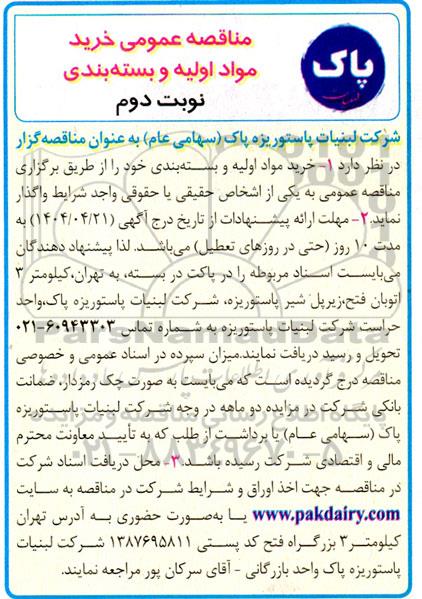 مناقصه عمومی خرید
مواد اولیه و بسته‌بندی
نوبت دوم
پاک
شرکت لبنیات پاستوریزه پاک (سهامی عام) به عنوان مناقصه‌گزار
در نظر دارد ۱- خرید مواد اولیه و بسته‌بندی خود را از طریق برگزاری
مناقصه عمومی به یکی از اشخاص حقیقی یا حقوقی واجد شرایط واگذار
نماید. ۲- مهلت ارائه پیشنهادات از تاریخ درج آگهی (۱۴۰۴/۰۴/۲۱) به
مدت ۱۰ روز (حتی در روزهای تعطیل) می‌باشد. لذا پیشنهاد دهندگان
می‌بایست اسناد مربوطه را در پاکت در بسته، به تهران، کیلومتر ۳
اتوبان فتح، زیرپل شیر پاستوریزه، شرکت لبنیات پاستوریزه پاک، واحد
حراست شرکت لبنیات پاستوریزه به شماره تماس ۶۰۹۴۳۳۰۳-۰۲۱
تحویل و رسید دریافت نمایند. میزان سپرده در اسناد عمومی و خصوصی
مناقصه درج گردیده است که می‌بایست به صورت چک رمزدار، ضمانت
بانکی شرکت در مزایده دو ماهه در وجه شرکت لبنیات پاستوریزه
پاک (سهامی عام) یا برداشت از طلب که به تأیید معاونت محترم
مالی و اقتصادی شرکت رسیده باشد. ۳- محل دریافت اسناد شرکت
در مناقصه جهت اخذ اوراق و شرایط شرکت در مناقصه به سایت
www.pakdairy.com یا به‌صورت حضوری به آدرس تهران
کیلومتر۳ بزرگراه فتح کد پستی ۱۳۸۷۶۹۵۸۱۱ شرکت لبنیات
پاستوریزه پاک واحد بازرگانی - آقای سرکان پور مراجعه نمایند.
ParsNamadData
۰۲۱-۸۸۳۴۹۶۷۰-۵